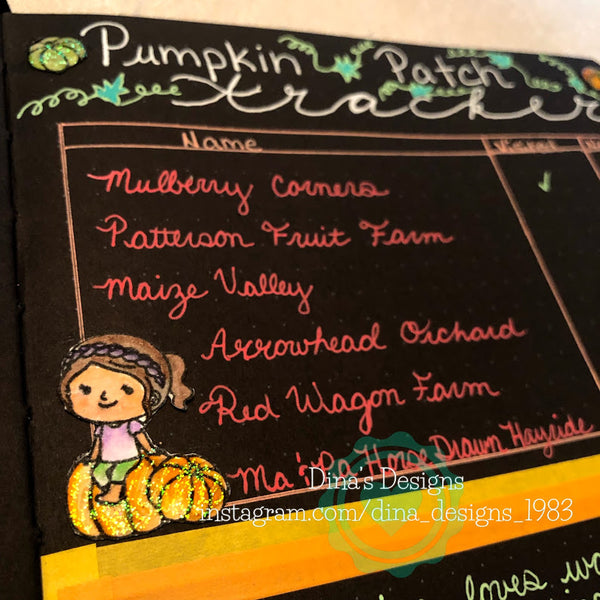 Pumpkin Patch
Tracker
Name
Mulberry Corners
Patterson Fruit Farm
Maize Valley
Arrowhead Orchard
Red Wagon Farm
Ma' & Pa Horse Drawn Hayride
Dina's Designs
instagram.com/dina_designs_1983
loves